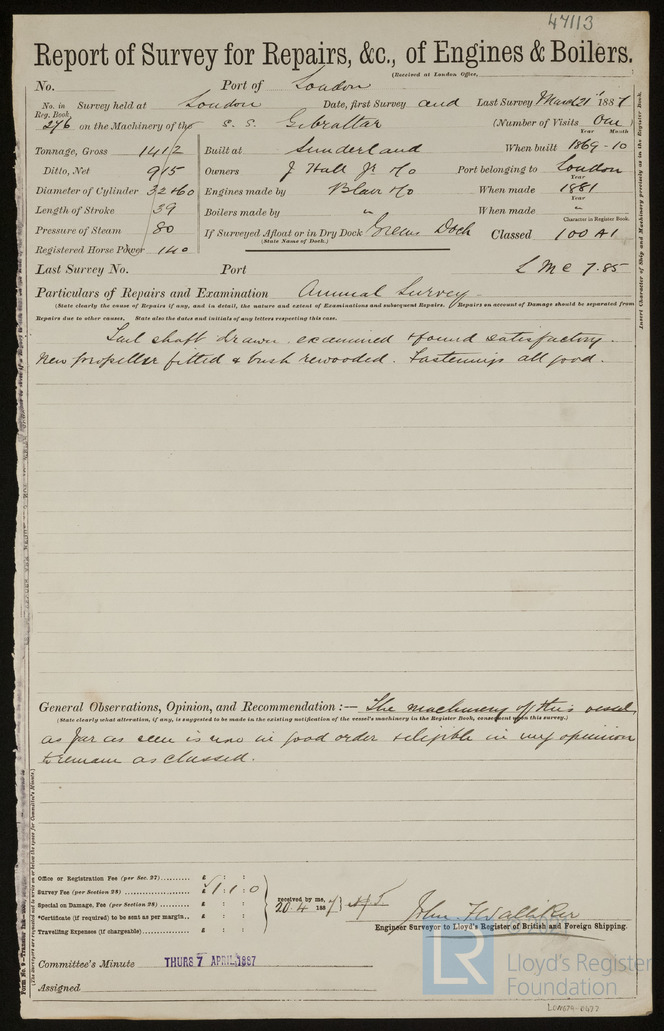 47113
Report of Survey for Repairs, &c., of Engines & Boilers.
(Received at London Office,
No. Port of London
No. in Reg. Book. Survey held at London Date, first Survey and Last Survey March 21st 1887
276 on the Machinery of the S. S. Gibraltar (Number of Visits One )
Tonnage, Gross 1412 Built at Sunderland When built Year Month 1869-10
Ditto, Net 915 Owners J Hall Jr & Co Port belonging to London
Diameter of Cylinder 32 & 60 Engines made by Blair & Co When made Year 1881
Length of Stroke 39 Boilers made by " When made Year "
Pressure of Steam 80 If Surveyed Afloat or in Dry Dock Greens Dock Classed Character in Register Book. 100 A1
(State Name of Dock.)
Registered Horse Power 140
Last Survey No. Port L M C 7.85
Particulars of Repairs and Examination Annual Survey
(State clearly the cause of Repairs if any, and in detail, the nature and extent of Examinations and subsequent Repairs. Repairs on account of Damage should be separated from
Repairs due to other causes. State also the dates and initials of any letters respecting this case.
Tail shaft drawn examined & found satisfactory.
New propeller fitted & bush rewooded. Fastenings all good.
General Observations, Opinion, and Recommendation :— The machinery of this vessel,
(State clearly what alteration, if any, is suggested to be made in the existing notification of the vessel's machinery in the Register Book, consequent upon this survey.)
as far as seen is now in good order & eligible in my opinion
to remain as classed.
Office or Registration Fee (per Sec. 27).......... £ : :
Survey Fee (per Section 28) .................... £ 1 : 1 : 0
Special on Damage, Fee (per Section 28) .......... £ : :
*Certificate (if required) to be sent as per margin.. £ : :
Travelling Expenses (if chargeable).............. £ : :
received by me,
20.4 1887
John F Walliker
Engineer Surveyor to Lloyd's Register of British and Foreign Shipping.
Committee's Minute THURS 7 APRIL 1887
Assigned
Insert Character of Ship and Machinery precisely as in the Register Book.
LR
Lloyd's Register
Foundation
LON674-0677